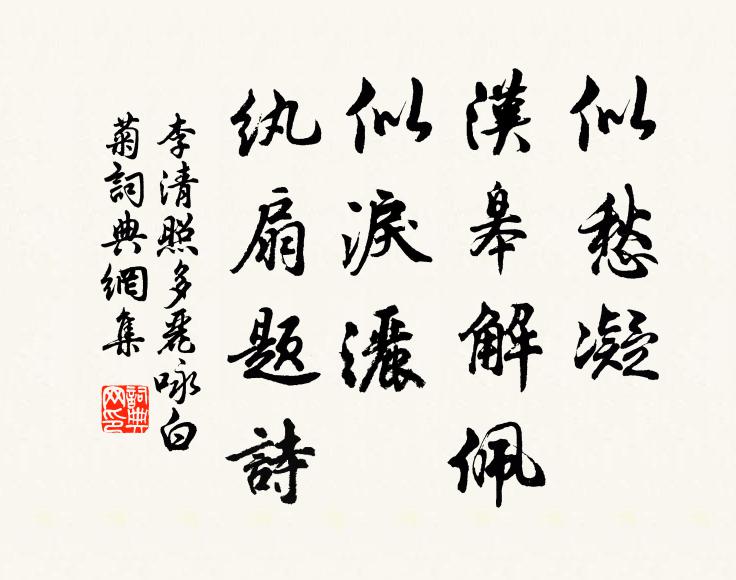 似愁凝
漢皋解佩
似淚灑
紈扇題詩
李清照多麗咏白
菊詞典網集
詞典网印